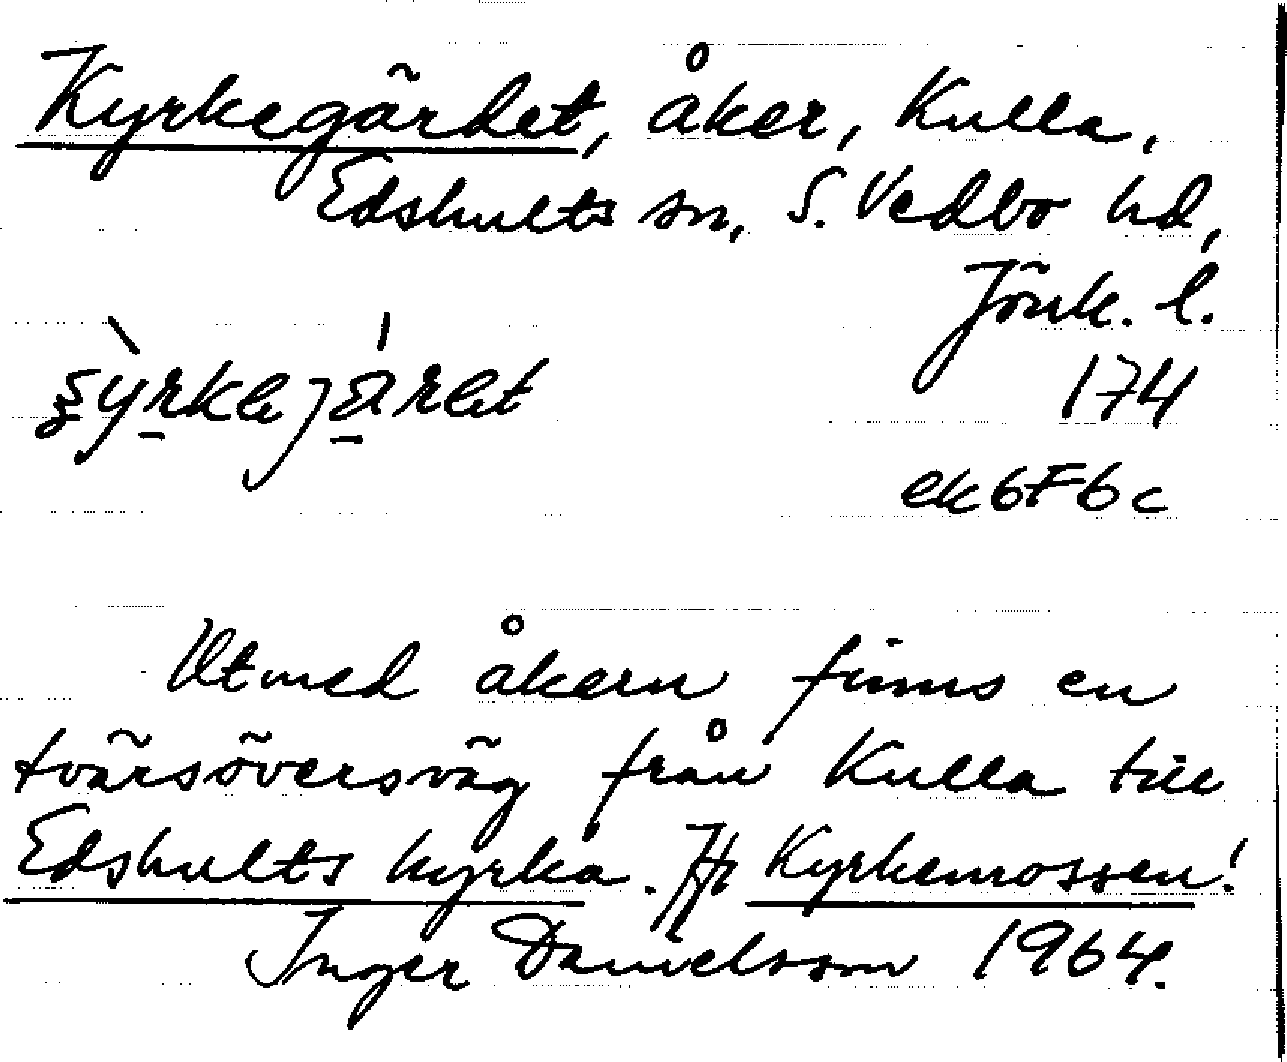 Kyrkegärdet, åker, Kulla,
Edshults sn, S. Vedbo hd,
Jönk. l.
174
ek6F6c
Utmed åkern finns en
tvärsöversväg från Kulla till
Edshults kyrka. Jfr Kyrkemossen!
Inger Danielsson 1964.